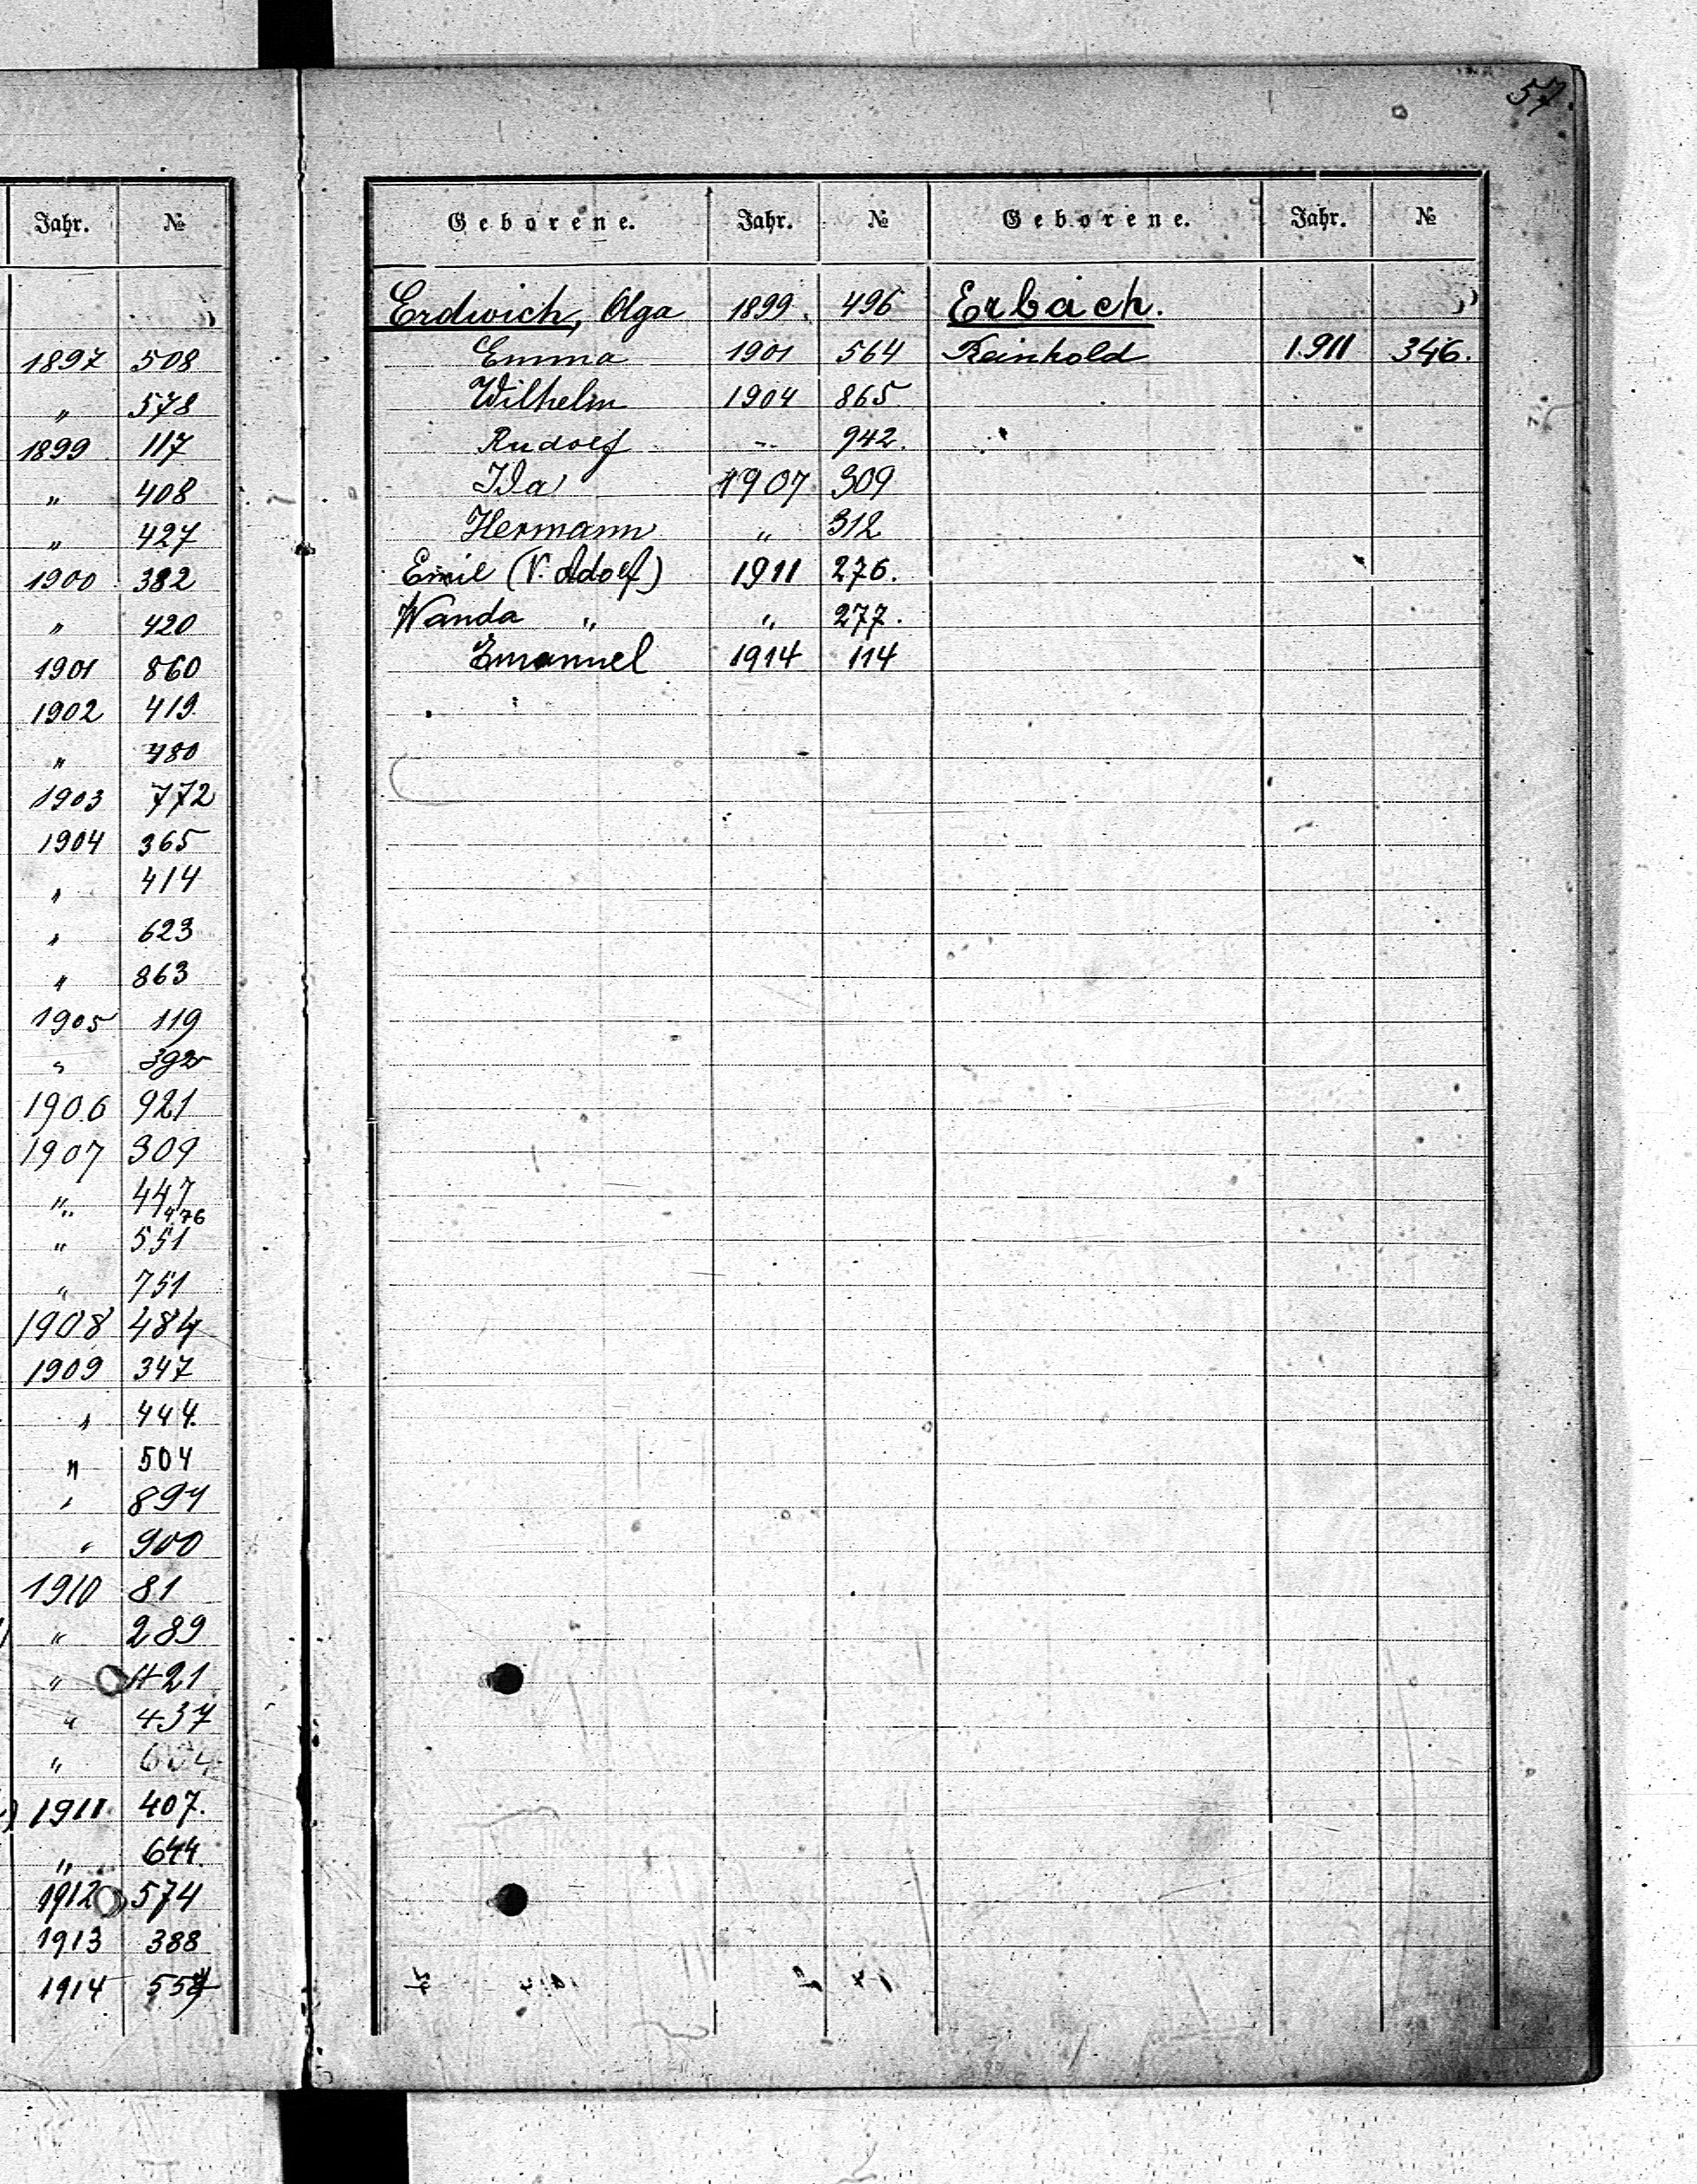 57.
Jahr. №
1897 508
„ 578
1899 117
„ 408
„ 427
1900 382
„ 420
1901 860
1902 419
„ 480
1903 772
1904 365
„ 414
„ 623
„ 863
1905 119
„ 392
1906 921
1907 309
„ 447
476
„ 551
„ 751
1908 484
1909 347
„ 444.
„ 504
„ 894
„ 900
1910 81
„ 289
„ 421
„ 437
„
1911 407.
„ 644.
1912 574
1913 388
1914
Geborene. Jahr. № Geborene. Jahr. №
Erdwich, Olga 1899. 496 Erbach.
Emma 1901 564 Reinhold 1911 346.
Wilhelm 1904 865
Rudolf „ 942.
Ida 1907 309
Hermann „ 312
Emil (V. Adolf) 1911 276.
Wanda „ „ 277.
Emanuel 1914 114